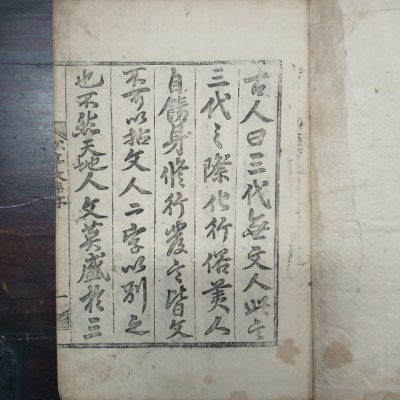 古人曰三代無文人此言
三代之際化行俗美人
自飭身修行發言皆文
不可以拈文人二字以別之
也不然天地人文莫盛於三